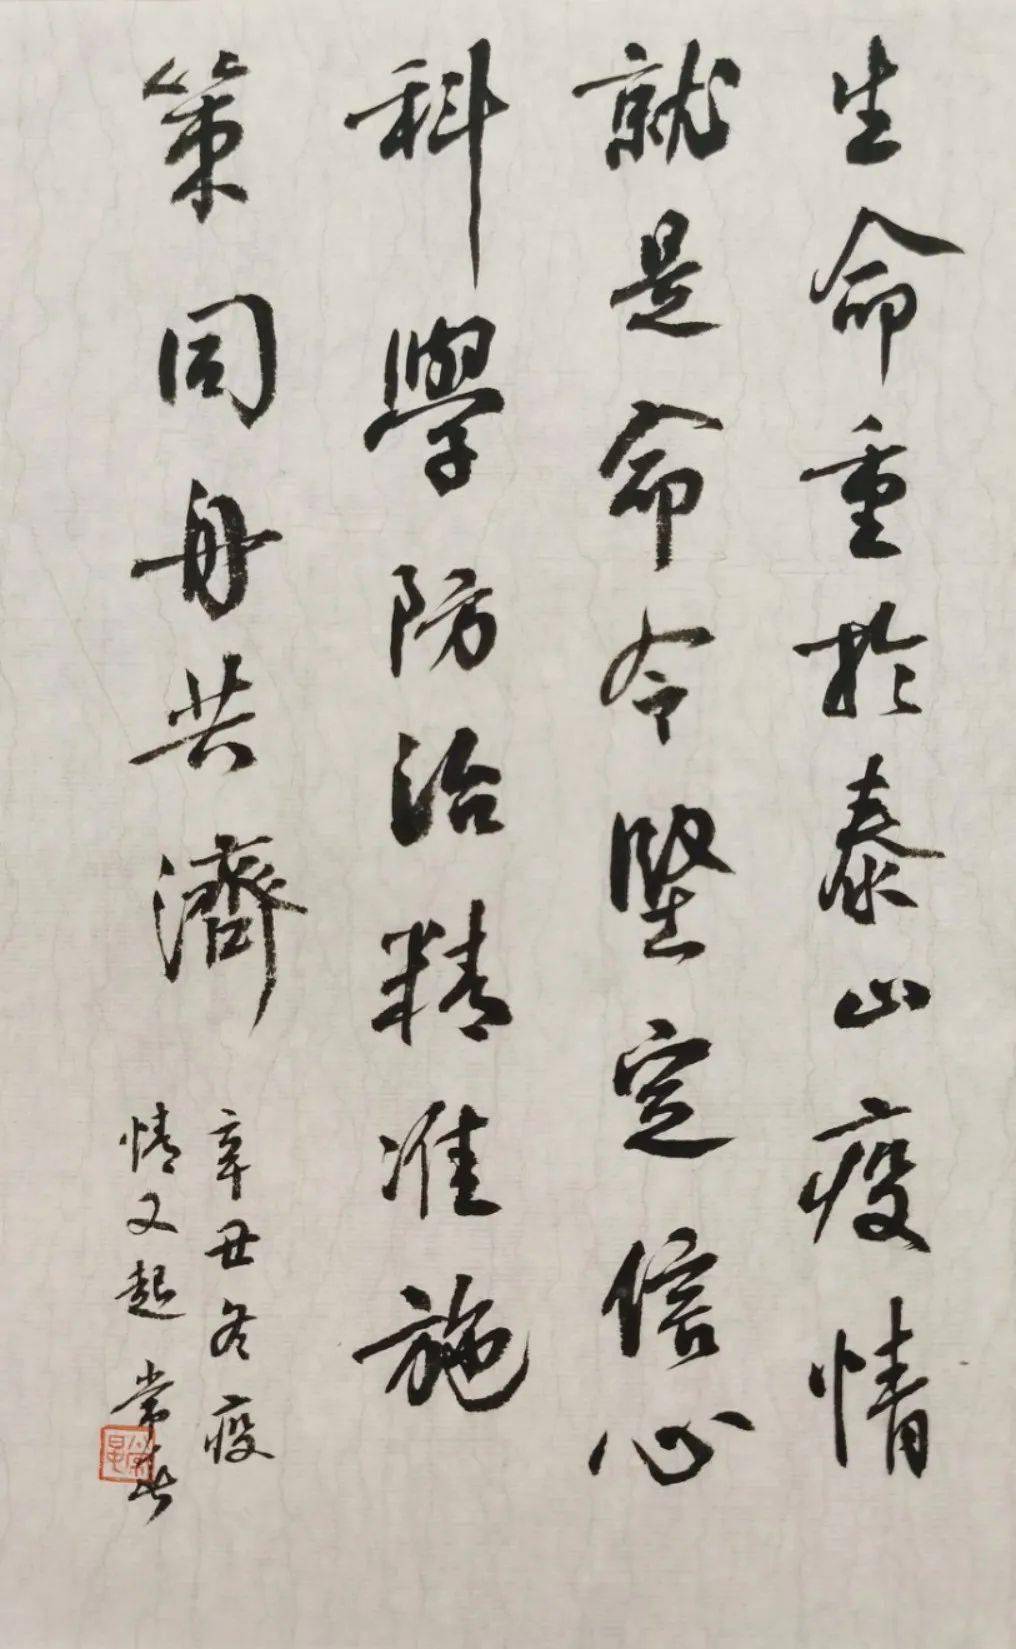 生命重於泰山疫情
就是命令堅定信心
科學防治精准施
策同舟共濟
辛丑冬疫
情又起 常